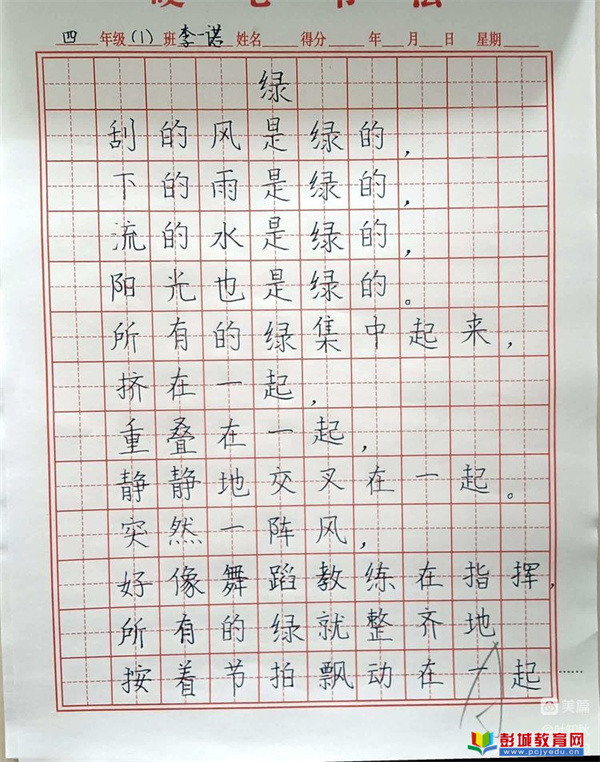 四 年级(1)班 李一诺 姓名 得分 年 月 日 星期
绿
刮的风是绿的，
下的雨是绿的，
流的水是绿的，
阳光也是绿的。
所有的绿集中起来，
挤在一起，
重叠在一起，
静静地交叉在一起。
突然一阵风，
好像舞蹈教练在指挥，
所有的绿就整齐地
按着节拍飘动在一起……
美颜
彭城教育网
www.pcjyedu.cn